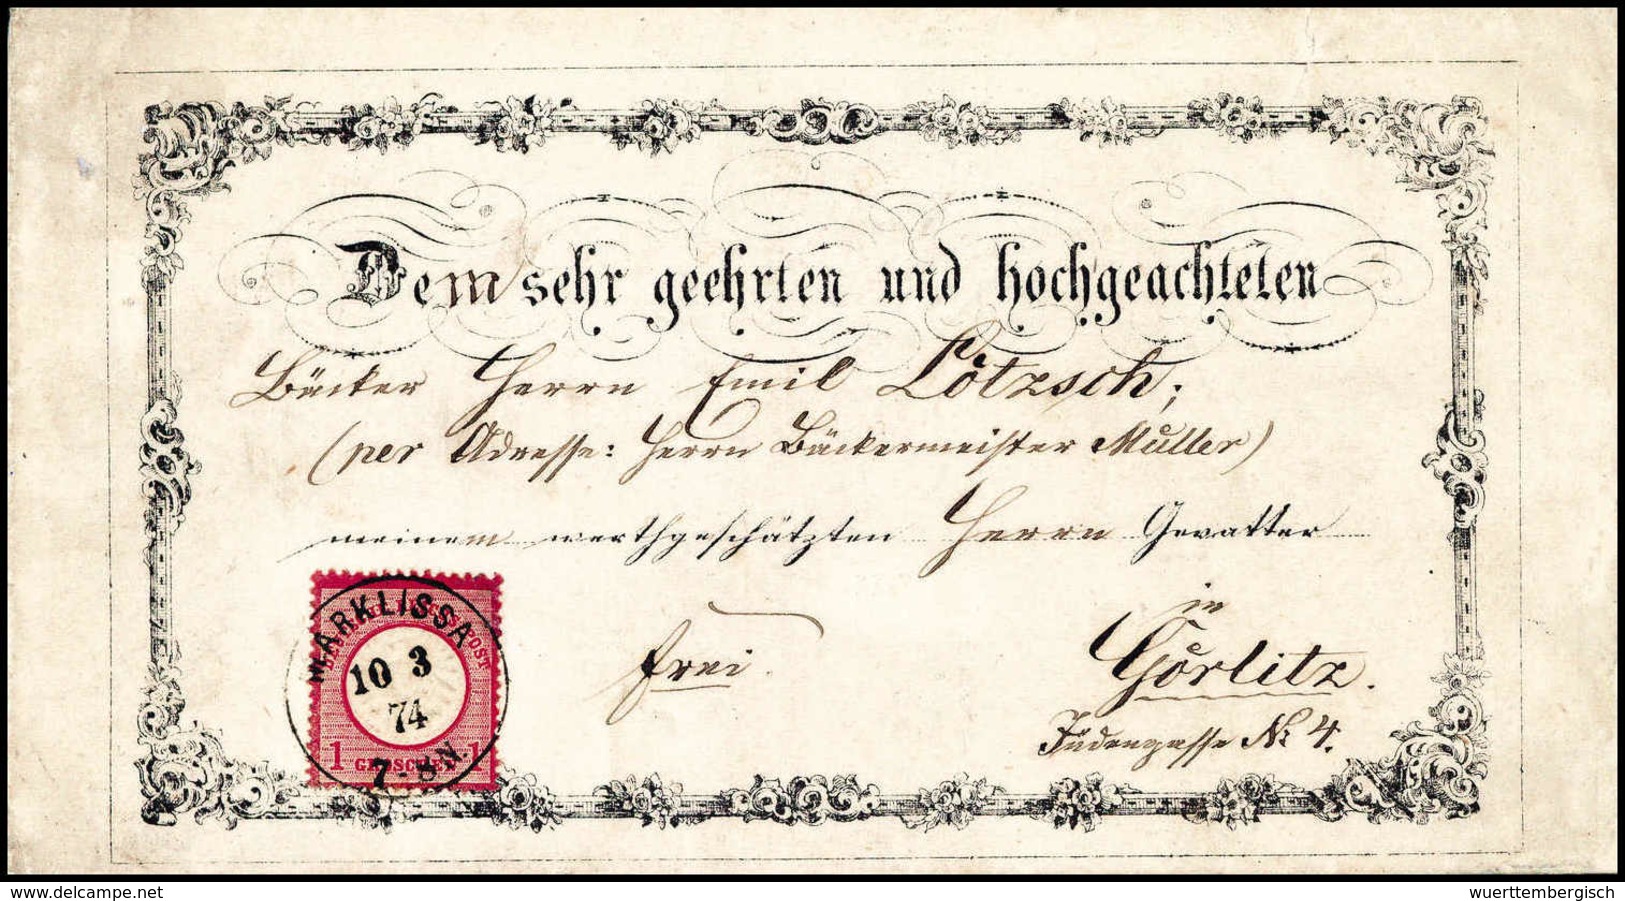 Dem sehr geehrten und hochgeachteten
Bäcker Herrn Emil Lötzsch;
(per Adresse: Herrn Bäckermeister Müller)
meinem werthgeschätzten Herrn Gevatter
in
frei. Görlitz.
Jüdengasse No 4.
MARKLISSA
10 3
74
7-8N.
1 GROSCHEN 1
www.delcampe.net
wuerttembergisch